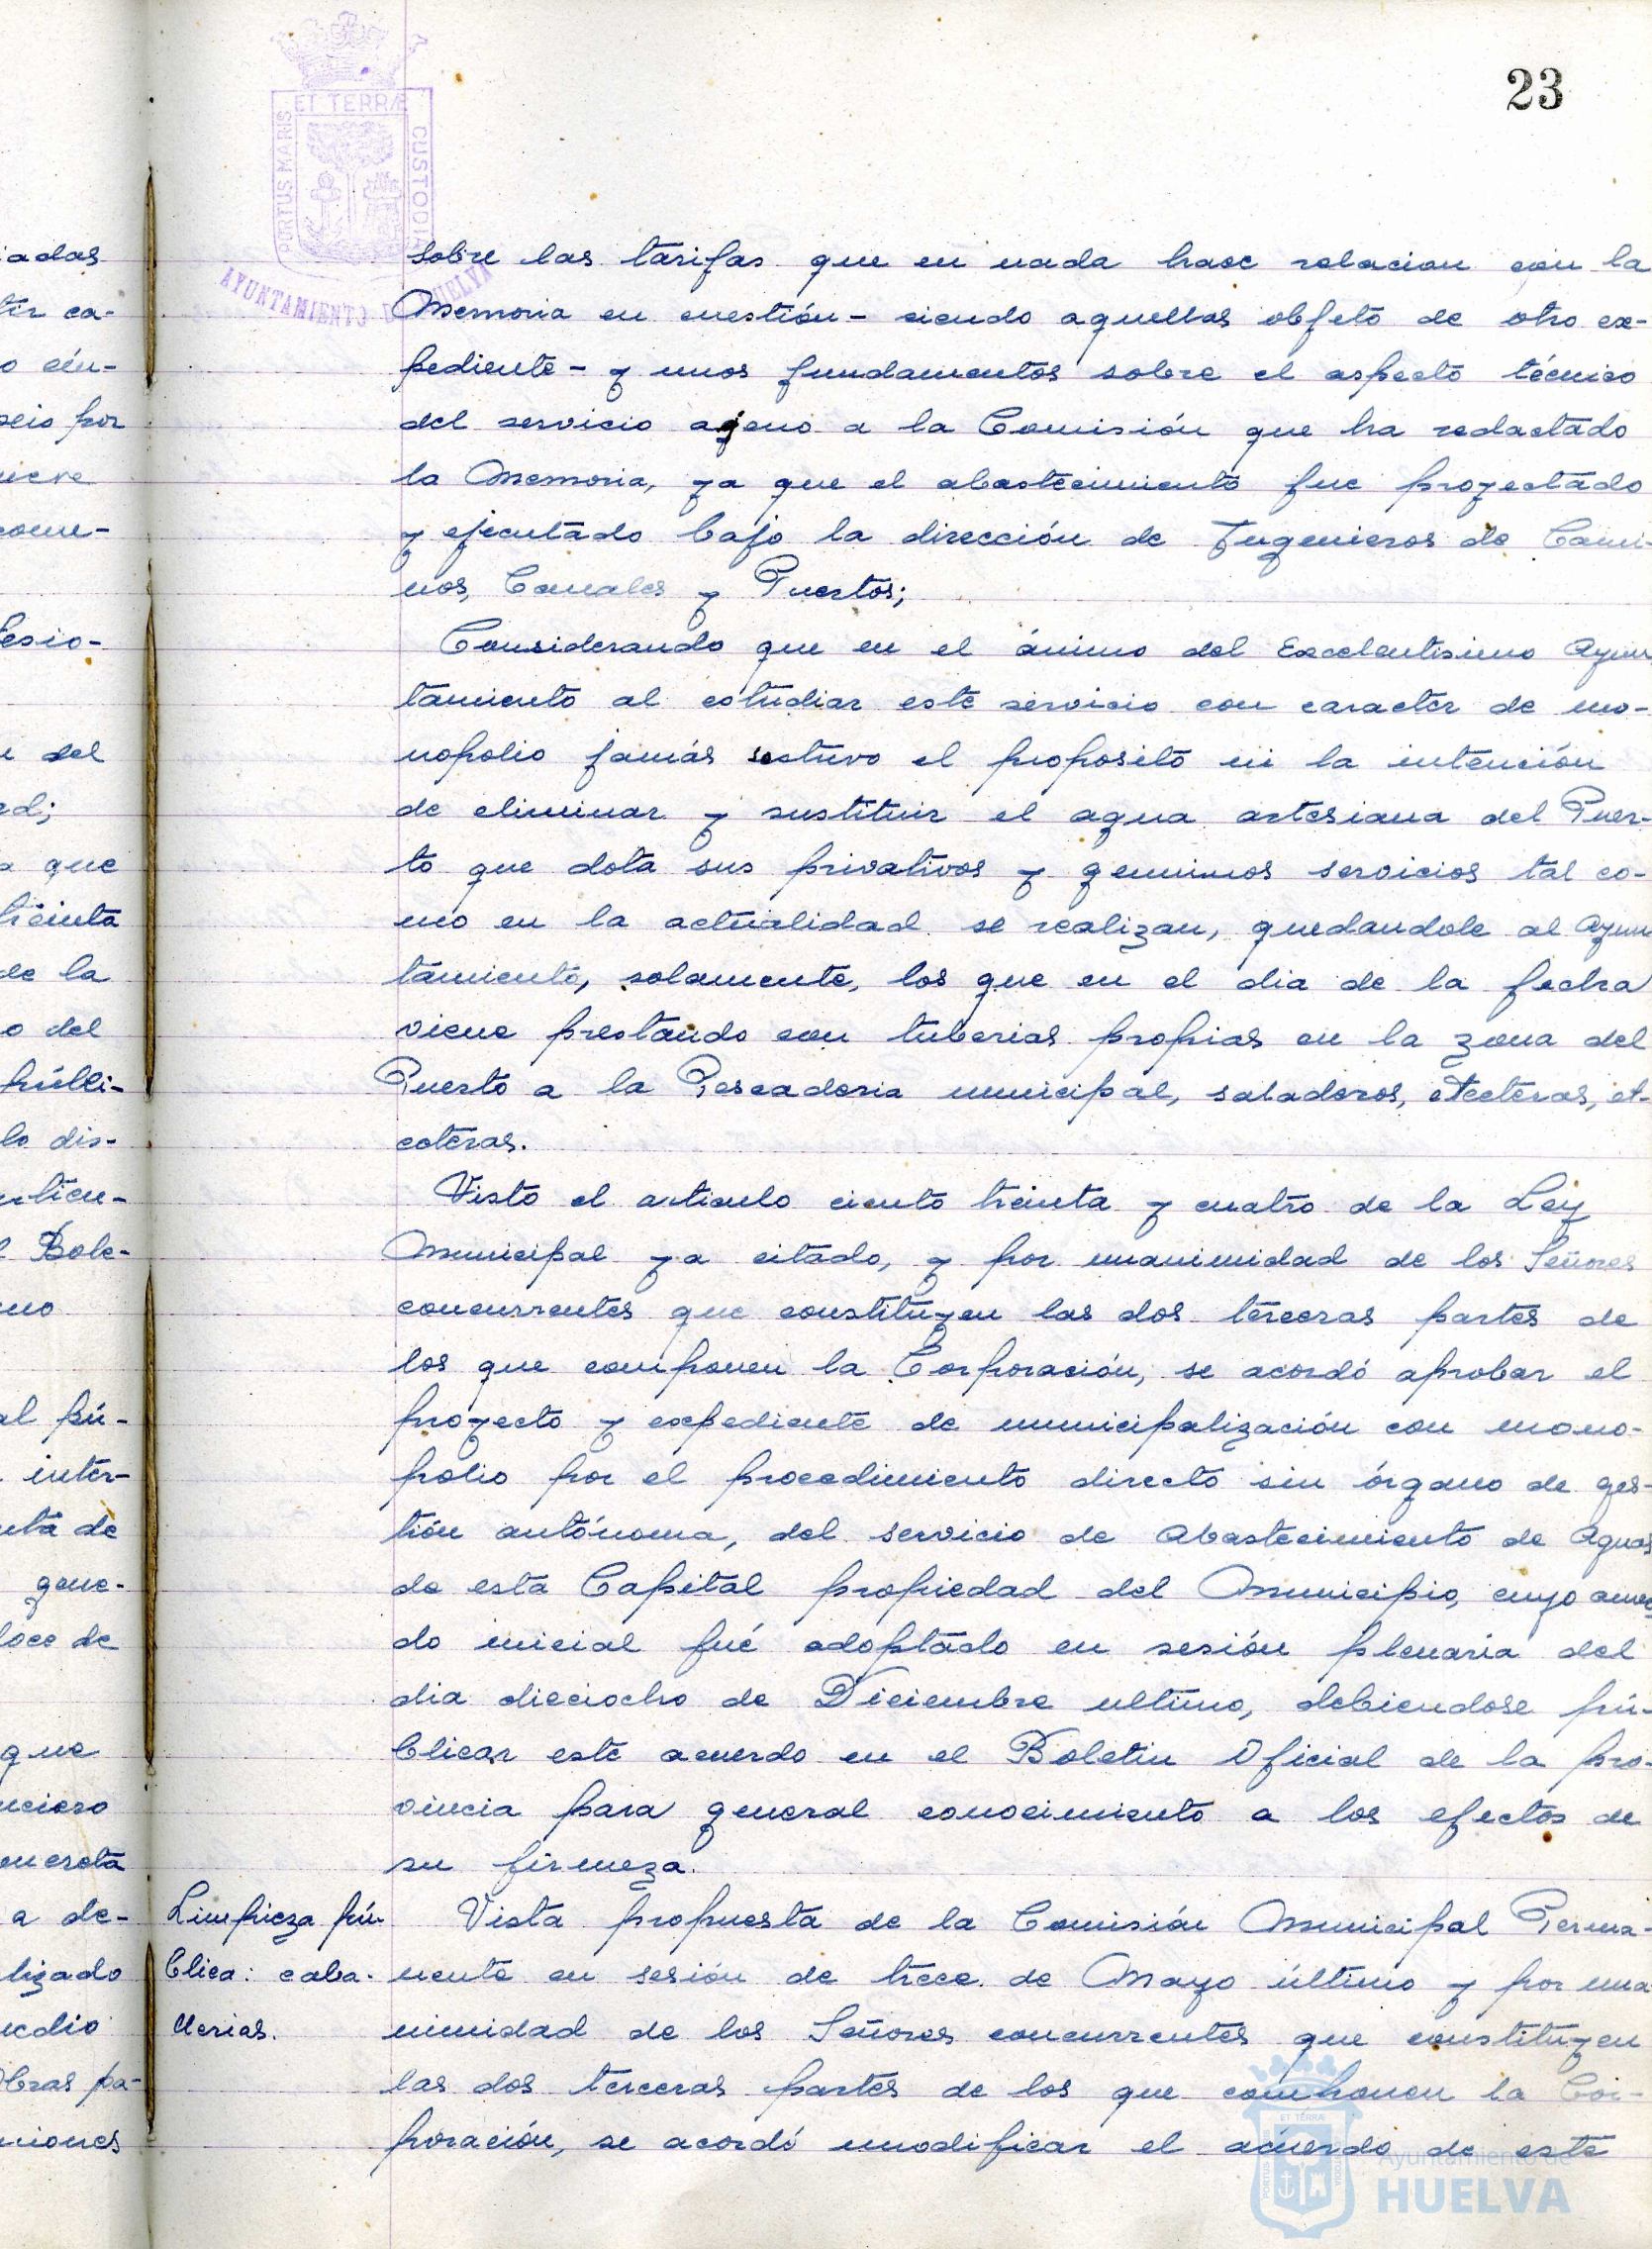 23
ET TERRÆ
PORTUS MARIS
CUSTODIA
AYUNTAMIENTO DE HUELVA
sobre las tarifas que en nada hace relacion con la
Memoria en cuestión - siendo aquellas objeto de otro ex-
pediente - y unos fundamentos sobre el aspecto técnico
del servicio ageno a la Comisión que ha redactado
la Memoria, ya que el abastecimiento fue proyectado
y ejecutado bajo la dirección de Ingenieros de Cami-
nos, Canales y Puertos;
Considerando que en el ánimo del Excelentisimo Ayun
tamiento al estudiar este servicio con caracter de mo-
nopolio jamás estuvo el proposito ni la intención
de eliminar y sustituir el agua artesiana del Puer-
to que dota sus privativos y genuinos servicios tal co-
mo en la actualidad se realizan, quedandole al Ayun
tamiento, solamente, los que en el dia de la fecha
viene prestando con tuberias propias en la zona del
Puerto a la Pescaderia municipal, saladeros, etceteras, et-
coteras.
Visto el articulo ciento treinta y cuatro de la Ley
Municipal ya citado, y por unanimidad de los Señores
concurrentes que constituyen las dos terceras partes de
los que componen la Corporación, se acordó aprobar el
proyecto y expediente de municipalización con mono-
polio por el procedimiento directo sin órgano de ges-
tión autónoma, del servicio de Abastecimiento de Aguas
de esta Capital propiedad del Municipio, cuyo acuer
do inicial fué adoptado en sesión plenaria del
dia dieciocho de Diciembre ultimo, debiendose pú-
blicar este acuerdo en el Boletin Oficial de la pro-
vincia para general conocimiento a los efectos de
su firmeza.
Limpieza pú-
blica: caba-
llerias.
Vista propuesta de la Comisión Municipal Perma-
nente en sesión de trece de Mayo último y por una
nimidad de los Señores concurrentes que constituyen
las dos terceras partes de los que componen la Cor-
poración, se acordó modificar el acuerdo de este
Ayuntamiento de
HUELVA
iadas
tir ca-
o cin-
seis por
ueve
come-
fesio-
n del
ed;
a que
treinta
de la
o del
públi-
lo dis-
articu-
l Bole-
mo
al pú-
inter-
nta de
gene-
doce de
que
nciero
oncreta
a de-
lizado
medio
Obras pa-
niones